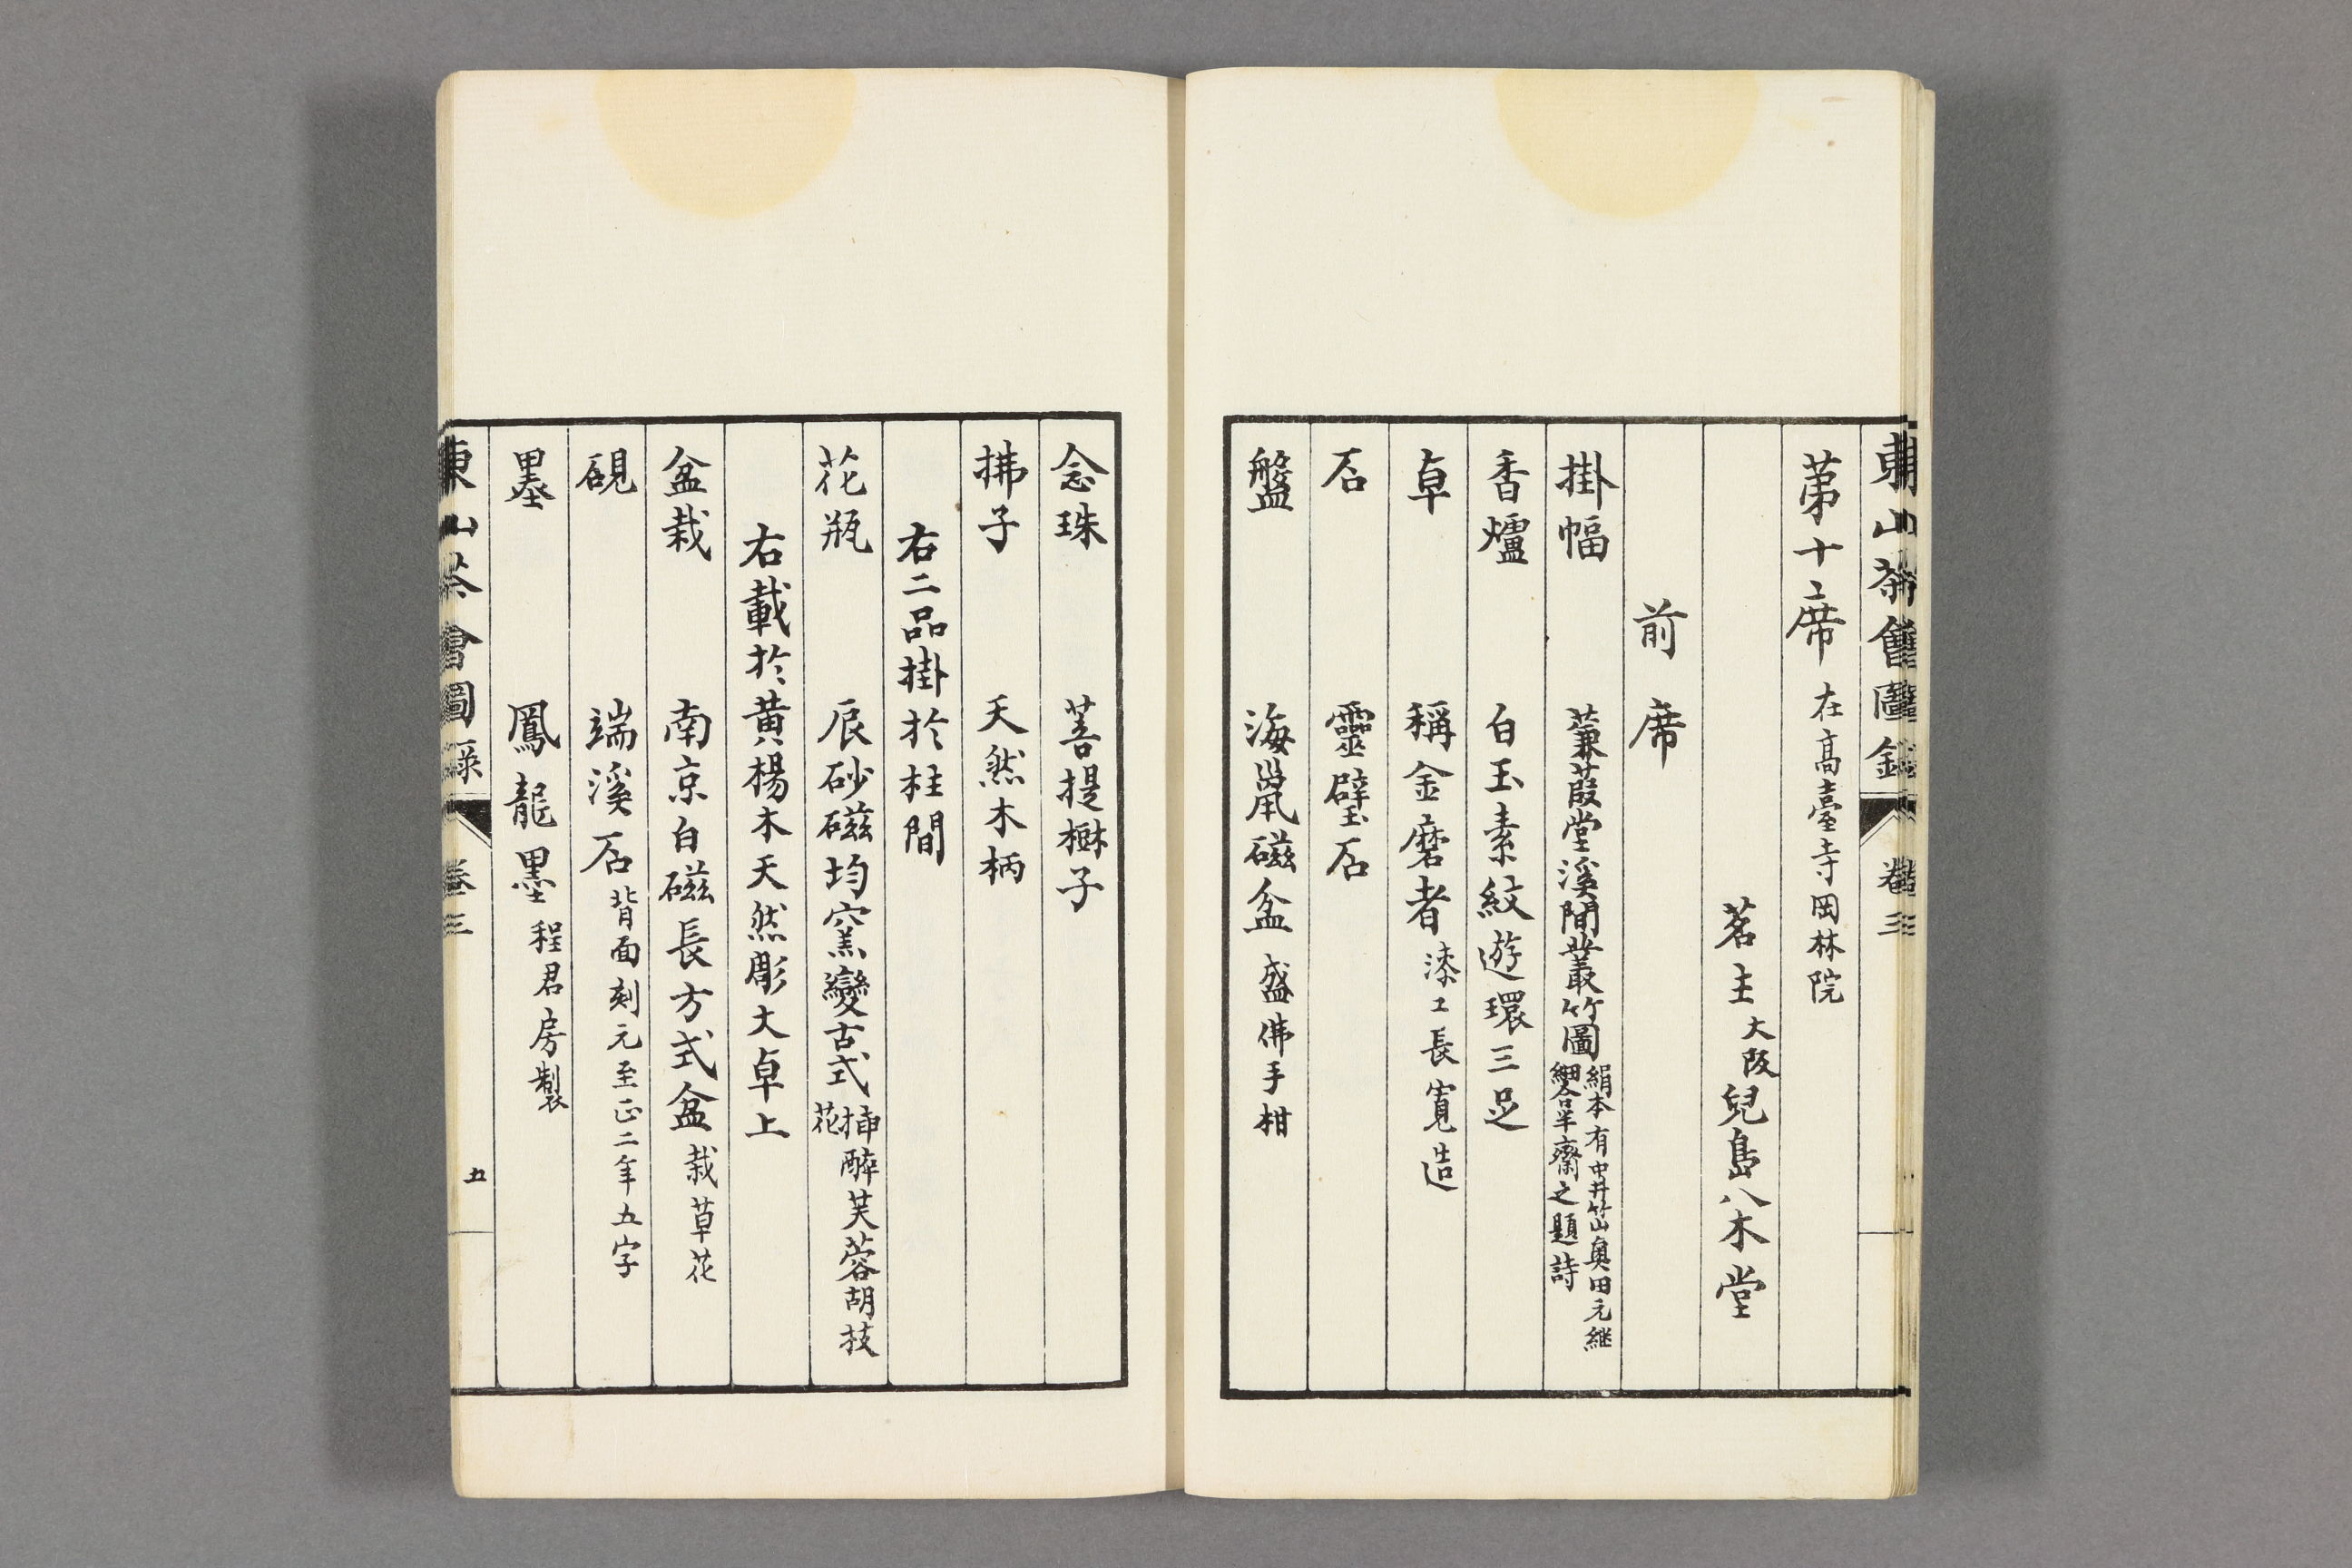 東山茶會圖録 卷三
第十席 在高臺寺岡林院
茗主 大阪 兒島八木堂
前席
掛幅 蒹葭堂溪間叢竹圖 絹本有中井竹山奥田元継
細合半齋之題詩
香爐 白玉素紋遊環三足
卓 稱金磨者 漆工長寛造
石 靈璧石
盤 海鼠磁盆 盛佛手柑
念珠 菩提楙子
拂子 天然木柄
右二品掛於柱間
花瓶 辰砂磁均窯變古式 挿醉芙蓉胡技
花
右載於黄楊木天然彫大卓上
盆栽 南京白磁長方式盆 栽草花
硯 端溪石 背面刻元至正二年五字
墨 鳳龍墨 程君房製
東山茶會圖録 卷三 五